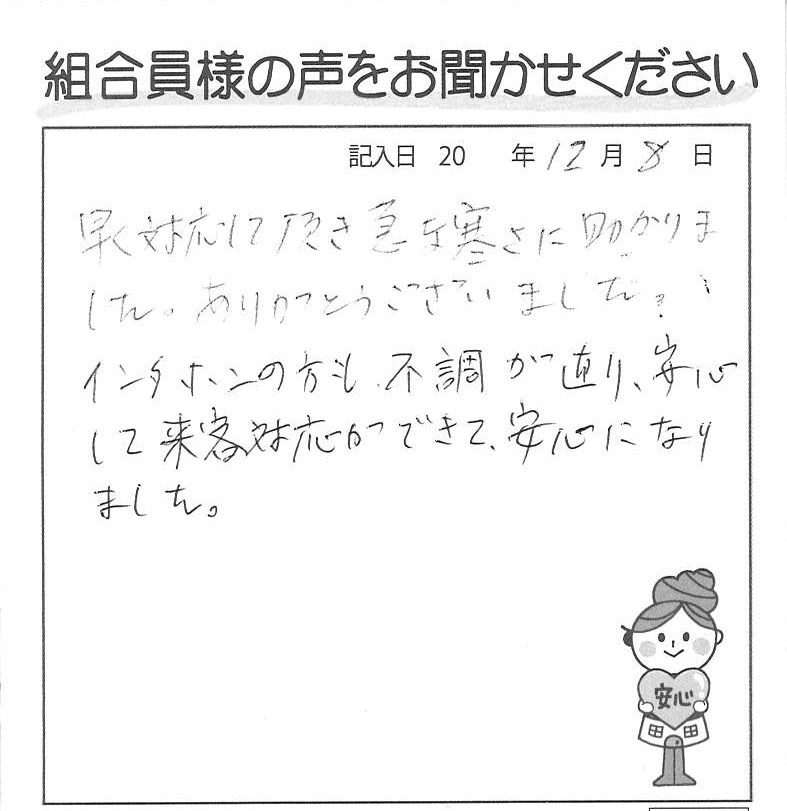 組合員様の声をお聞かせください
記入日 20 年 12 月 8 日
早く対応して頂き急な寒さに助かりま
した。ありがとうございました。
インターホンの方も、不調が直り、安心
して来客対応ができて、安心になり
ました。
安心